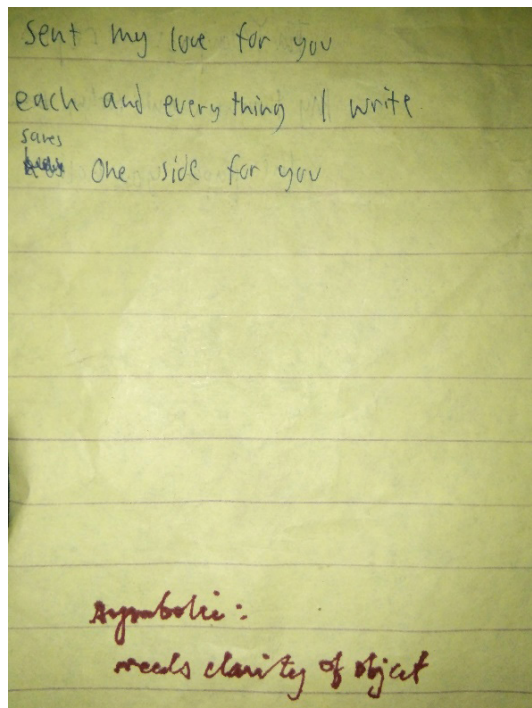 sent my love for you
each and every thing I write
saves
One side for you
symbolic:
needs clarity of object